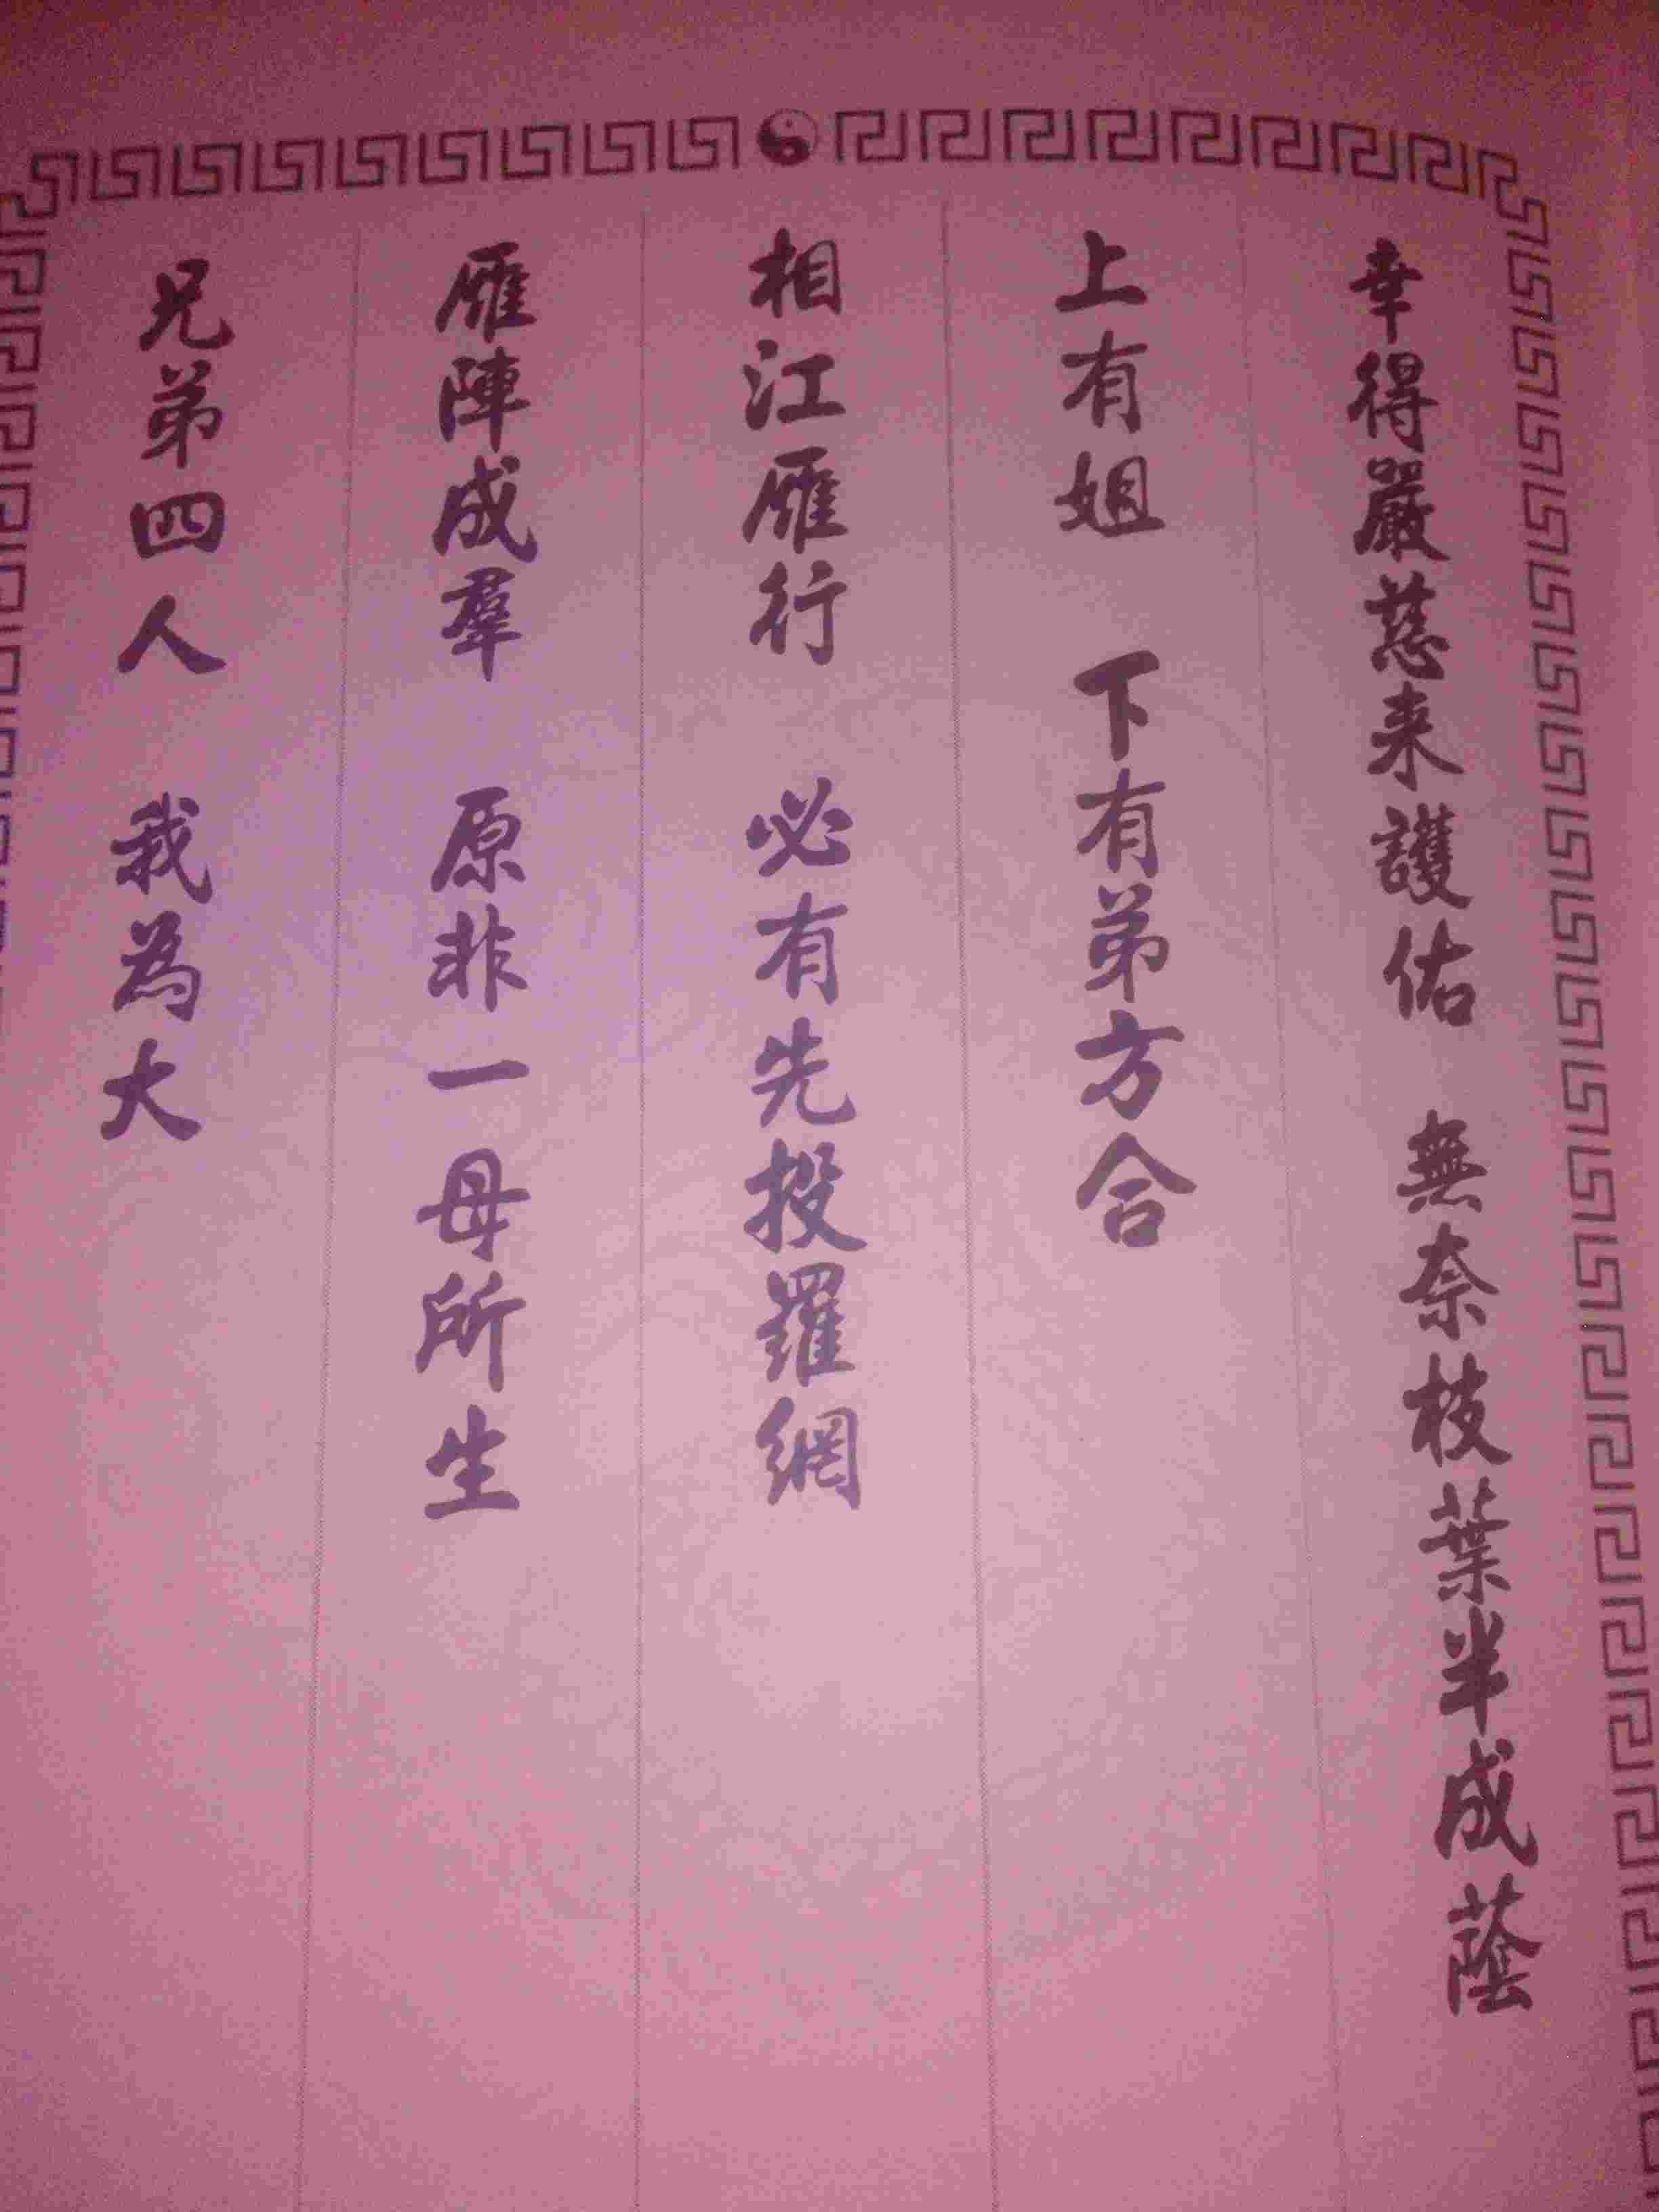 幸得嚴慈来護佑 無奈枝葉半成蔭
上有姐 下有弟方合
相江雁行 必有先投羅網
雁陣成羣 原非一母所生
兄弟四人 我為大